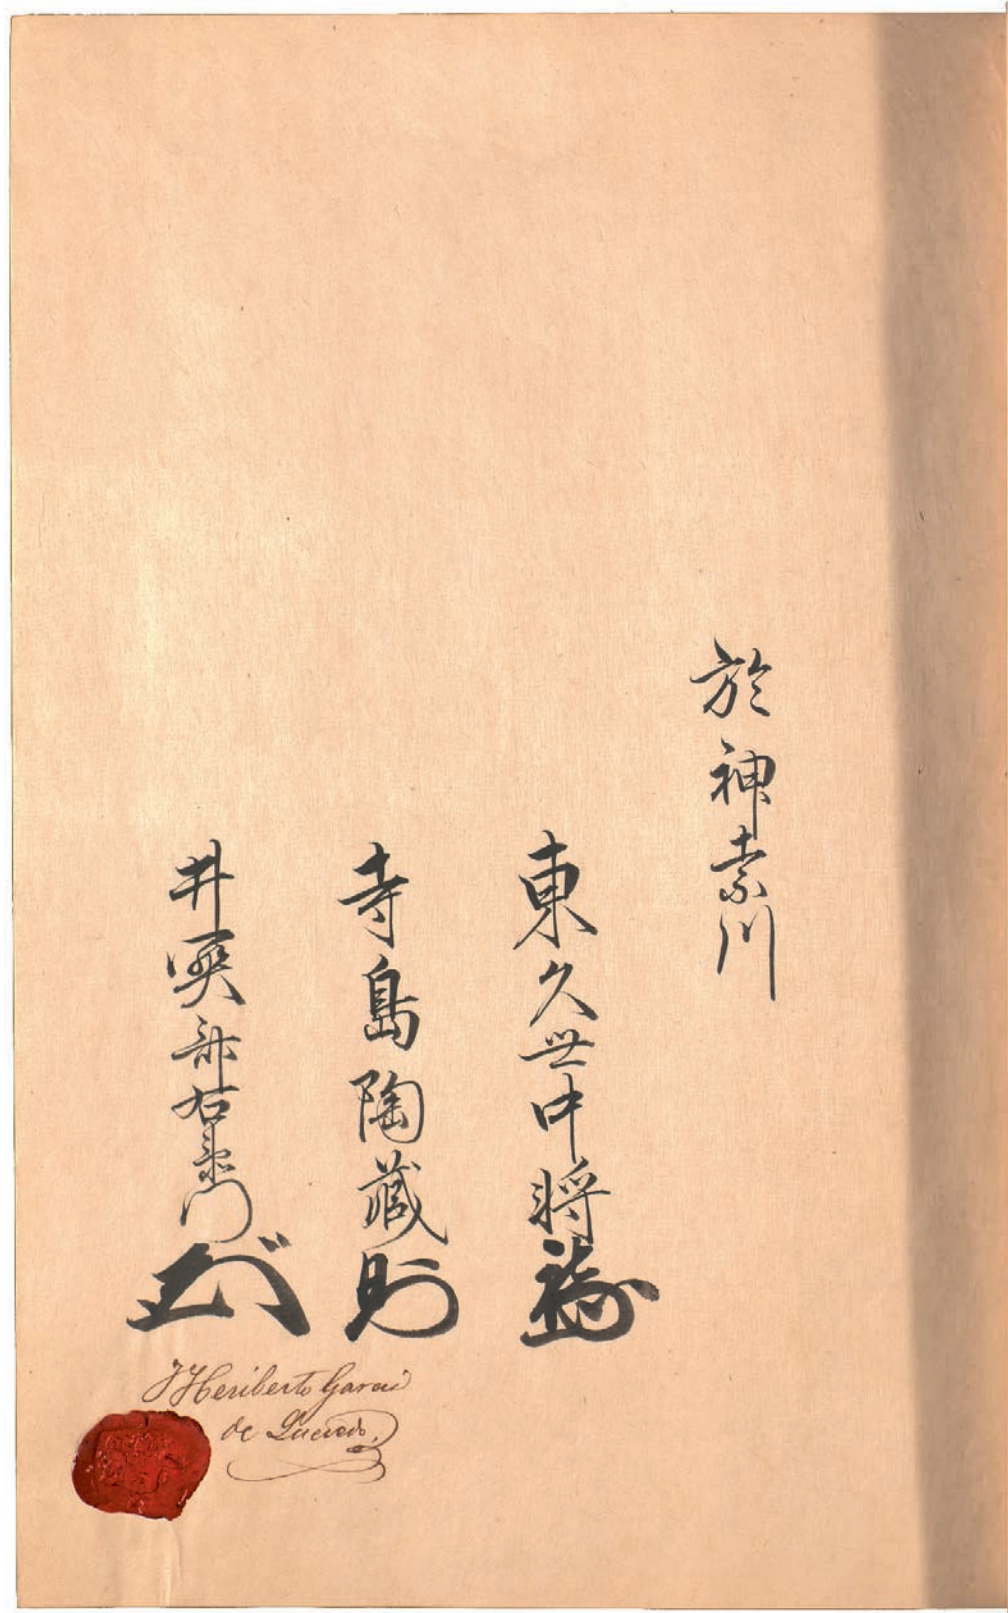 於神奈川
東久世中将
寺島陶蔵
井関斎右衛門
J Heriberto Garcia
de Quevedo.